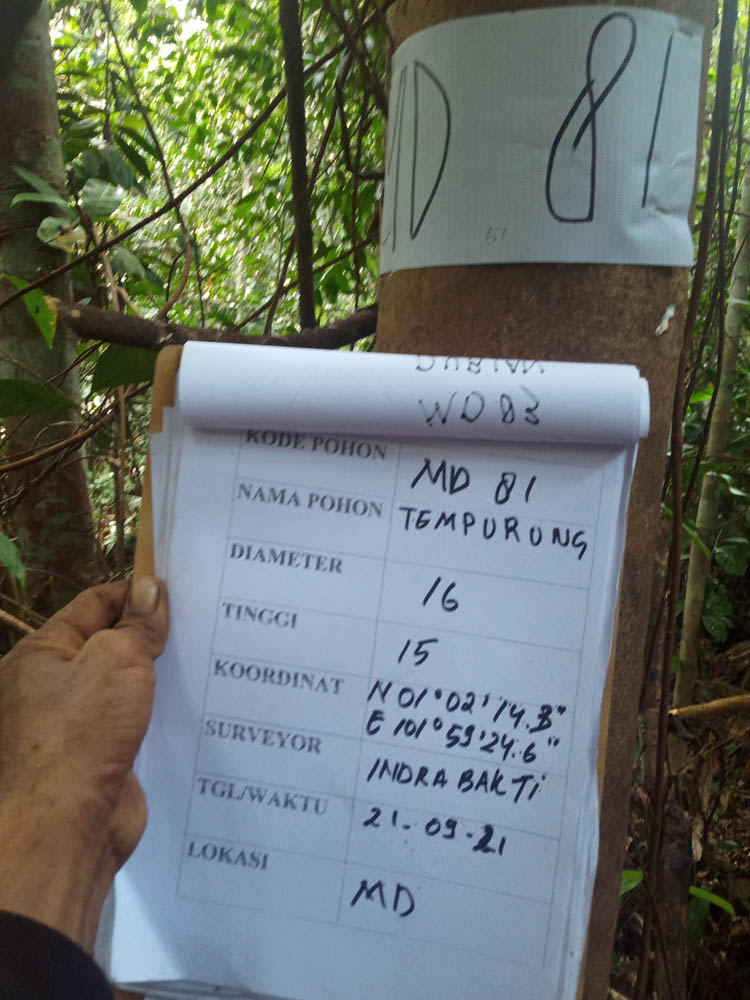 MD 81
51
WD 83
KODE POHON MD 81
NAMA POHON TEMPURUNG
DIAMETER 16
TINGGI 15
KOORDINAT N 01°02'14.3"
E 101°59'24.6"
SURVEYOR INDRA BAKTI
TGL/WAKTU 21-09-21
LOKASI MD